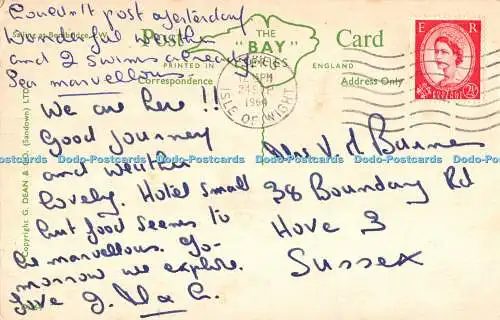 Couldn't post yesterday
Wonderful weather
and 2 swims already
Sea marvellous
Post
THE
"BAY"
SERIES
Card
PRINTED IN
ENGLAND
Correspondence
Address Only
E R
POSTAGE
2½D
1960
ISLE OF WIGHT
We are here !!
Good journey
and weather
lovely. Hotel small
but food seems to
be marvellous. To-
morrow we explore.
Love
Mrs V. H Burnes
38 Boundary Rd
Hove 3
Sussex
Copyright G. DEAN & Co. (Sandown) LTD.
Dodo-Postcards Dodo-Postcards Dodo-Postcards Dodo-Postcards Dodo-Postcards Dodo-Postcards